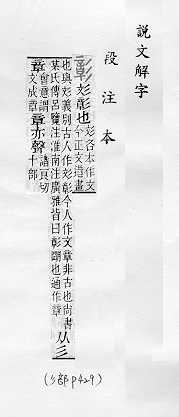 說文解字
段注本
彰 彣彰也 彣各本作文
今正文逪畫
也與彣義別古人作彣彰今人作文章非古也尚書
某氏傳呂覽注淮南注廣雅皆曰彰朙也通作章 从彡
章 會意謂
文成章 章亦聲 諸良切
十部
(彡部 p429)